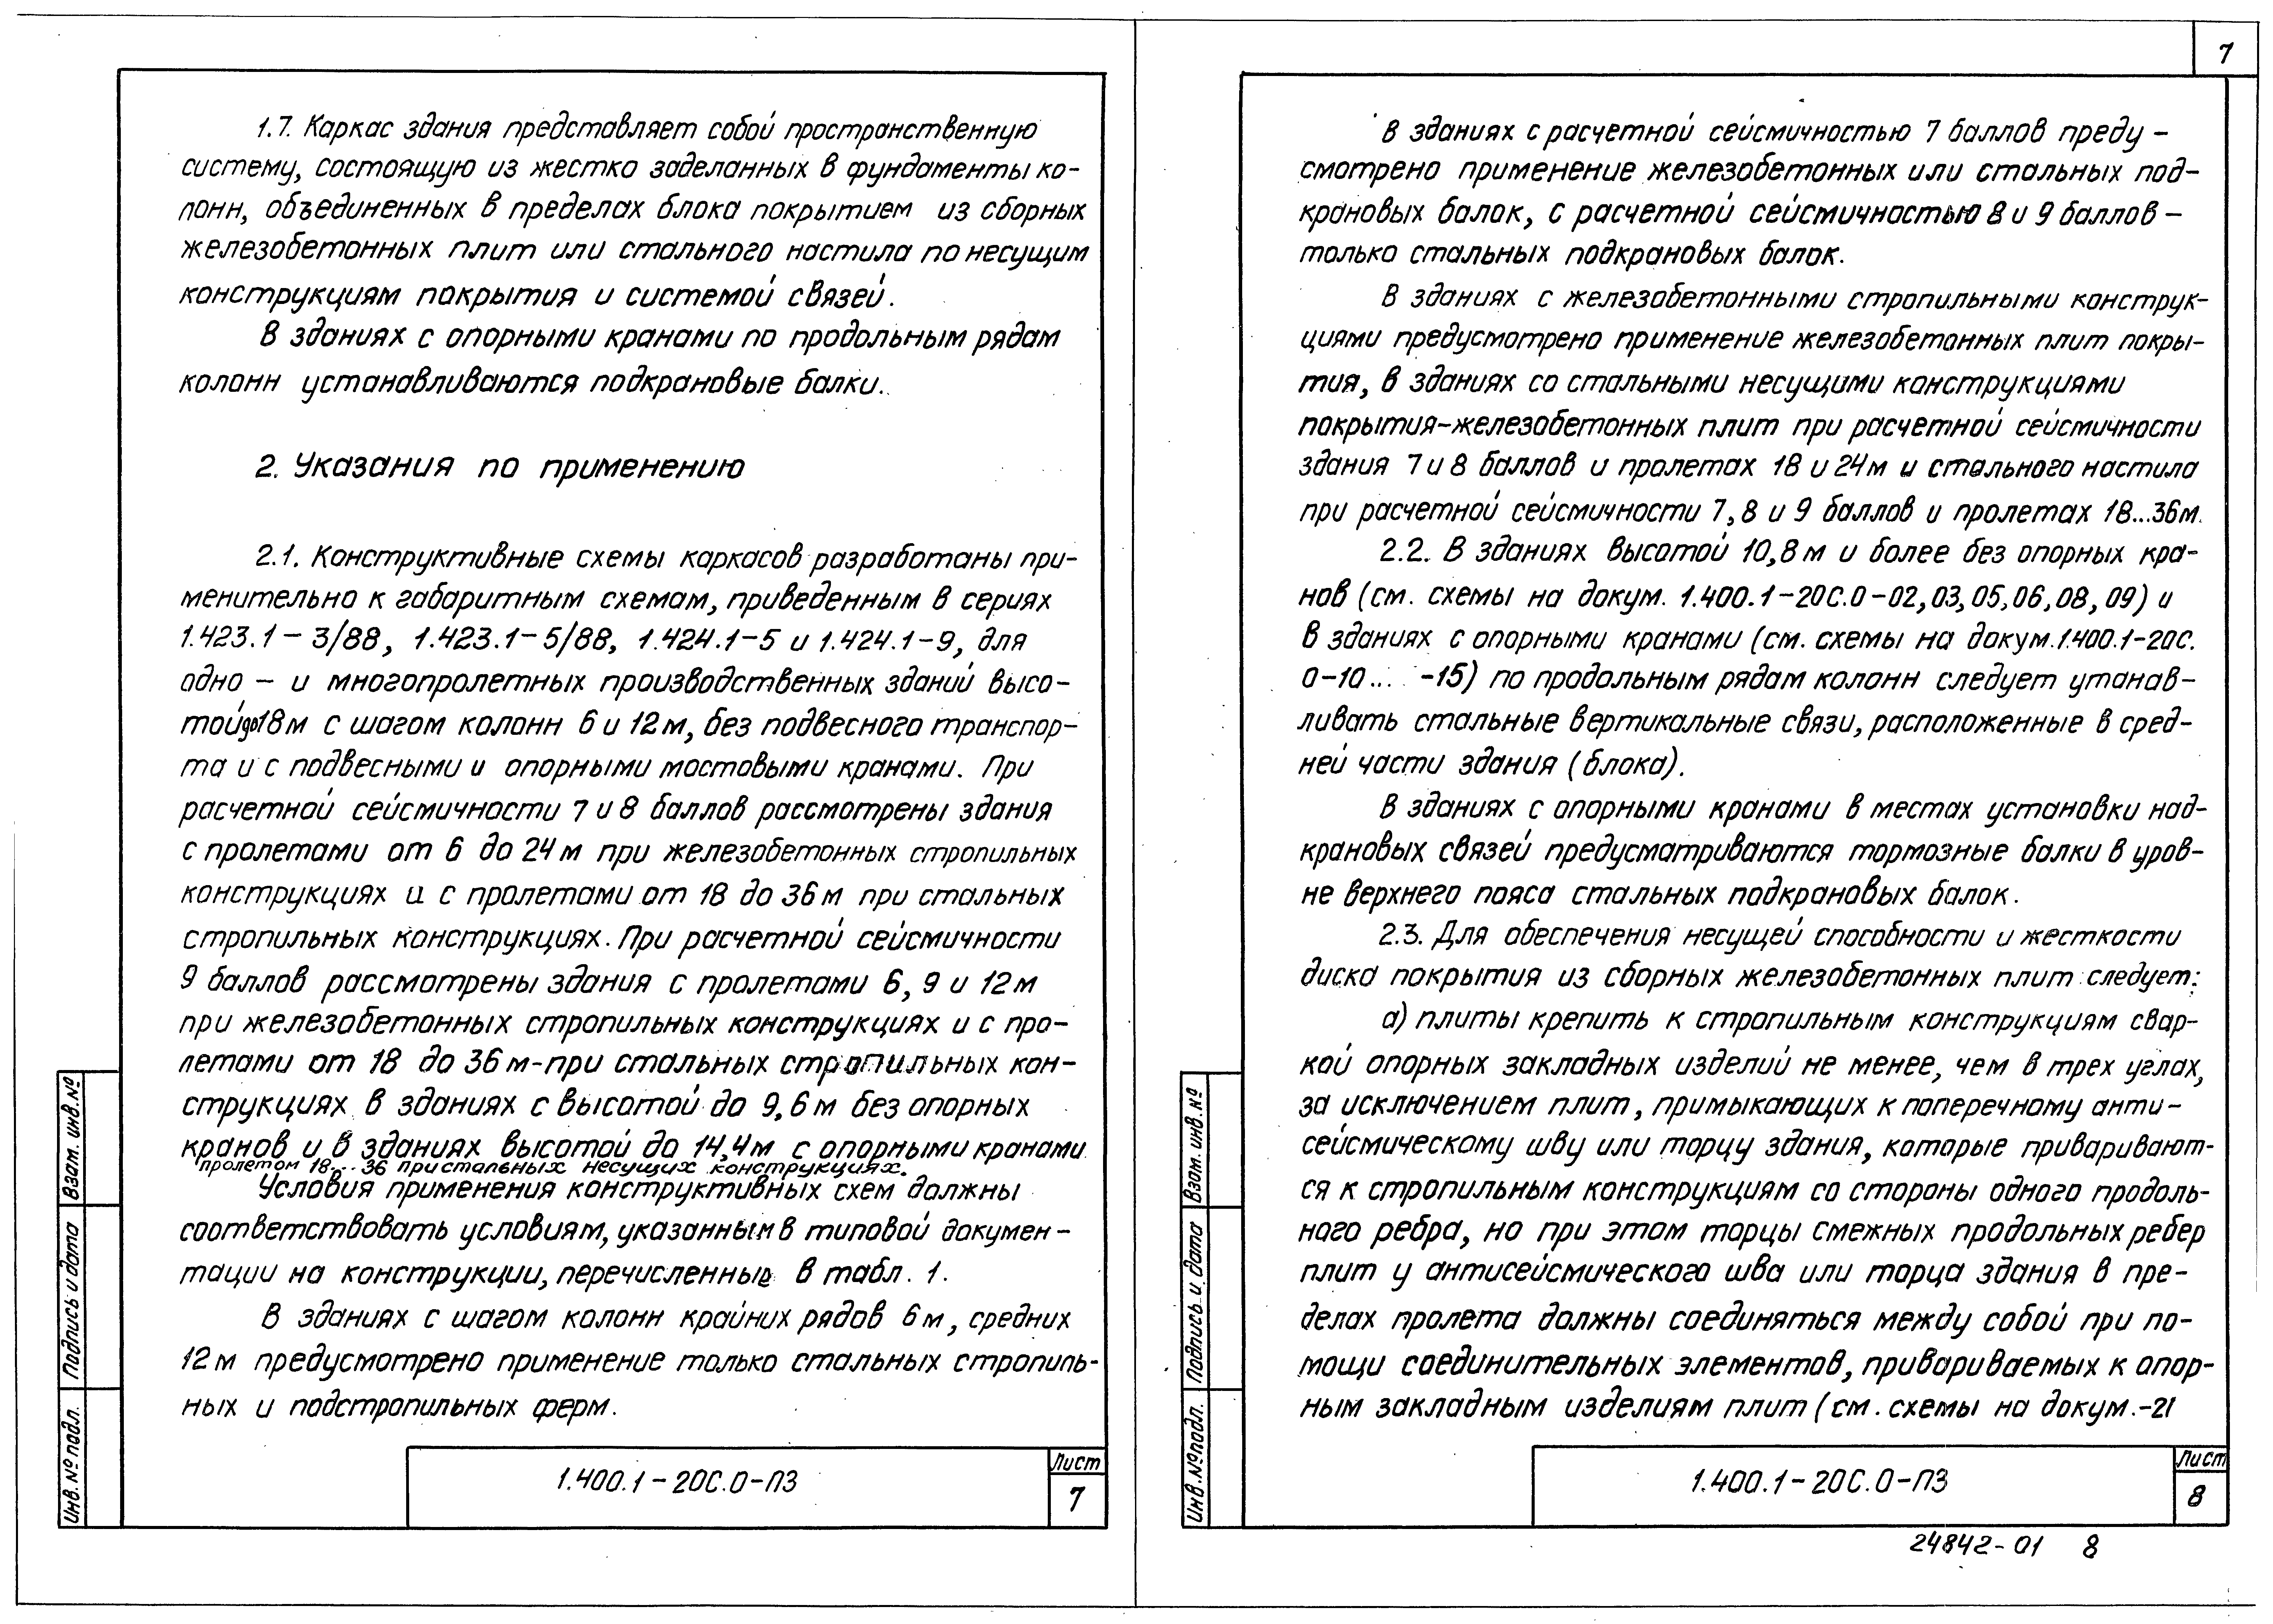 1.7. Каркас здания представляет собой пространственную
систему, состоящую из жестко заделанных в фундаменты ко-
лонн, объединенных в пределах блока покрытием из сборных
железобетонных плит или стального настила по несущим
конструкциям покрытия и системой связей.
В зданиях с опорными кранами по продольным рядам
колонн устанавливаются подкрановые балки.
2. Указания по применению
2.1. Конструктивные схемы каркасов разработаны при-
менительно к габаритным схемам, приведенным в сериях
1.423.1-3/88, 1.423.1-5/88, 1.424.1-5 и 1.424.1-9, для
одно - и многопролетных производственных зданий высо-
той до 18м с шагом колонн 6 и 12м, без подвесного транспор-
та и с подвесными и опорными мостовыми кранами. При
расчетной сейсмичности 7 и 8 баллов рассмотрены здания
с пролетами от 6 до 24м при железобетонных стропильных
конструкциях и с пролетами от 18 до 36м при стальных
стропильных конструкциях. При расчетной сейсмичности
9 баллов рассмотрены здания с пролетами 6, 9 и 12м
при железобетонных стропильных конструкциях и с про-
летами от 18 до 36м-при стальных стропильных кон-
струкциях в зданиях с высотой до 9,6м без опорных
кранов и в зданиях высотой до 14,4м с опорными кранами
пролетом 18...36 при стальных несущих конструкциях.
Условия применения конструктивных схем должны
соответствовать условиям, указанным в типовой докумен-
тации на конструкции, перечисленные в табл. 1.
В зданиях с шагом колонн крайних рядов 6м, средних
12м предусмотрено применение только стальных стропиль-
ных и подстропильных ферм.
Взам. инв. №
Подпись и дата
Инв. № подл.
1.400.1-20С.0-ПЗ
Лист
7
7
В зданиях с расчетной сейсмичностью 7 баллов преду-
смотрено применение железобетонных или стальных под-
крановых балок, с расчетной сейсмичностью 8 и 9 баллов -
только стальных подкрановых балок.
В зданиях с железобетонными стропильными конструк-
циями предусмотрено применение железобетонных плит покры-
тия, в зданиях со стальными несущими конструкциями
покрытия-железобетонных плит при расчетной сейсмичности
здания 7 и 8 баллов и пролетах 18 и 24м и стального настила
при расчетной сейсмичности 7, 8 и 9 баллов и пролетах 18...36м.
2.2. В зданиях высотой 10,8м и более без опорных кра-
нов (см. схемы на докум. 1.400.1-20С.0-02, 03, 05, 06, 08, 09) и
в зданиях с опорными кранами (см. схемы на докум. 1.400.1-20С.
0-10... -15) по продольным рядам колонн следует утанав-
ливать стальные вертикальные связи, расположенные в сред-
ней части здания (блока).
В зданиях с опорными кранами в местах установки над-
крановых связей предусматриваются тормозные балки в уров-
не верхнего пояса стальных подкрановых балок.
2.3. Для обеспечения несущей способности и жесткости
диска покрытия из сборных железобетонных плит следует:
а) плиты крепить к стропильным конструкциям свар-
кой опорных закладных изделий не менее, чем в трех углах,
за исключением плит, примыкающих к поперечному анти-
сейсмическому шву или торцу здания, которые приваривают-
ся к стропильным конструкциям со стороны одного продоль-
ного ребра, но при этом торцы смежных продольных ребер
плит у антисейсмического шва или торца здания в пре-
делах пролета должны соединяться между собой при по-
мощи соединительных элементов, привариваемых к опор-
ным закладным изделиям плит (см. схемы на докум.-21
Взам. инв. №
Подпись и дата
Инв. № подл.
1.400.1-20С.0-ПЗ
Лист
8
24842-01 8